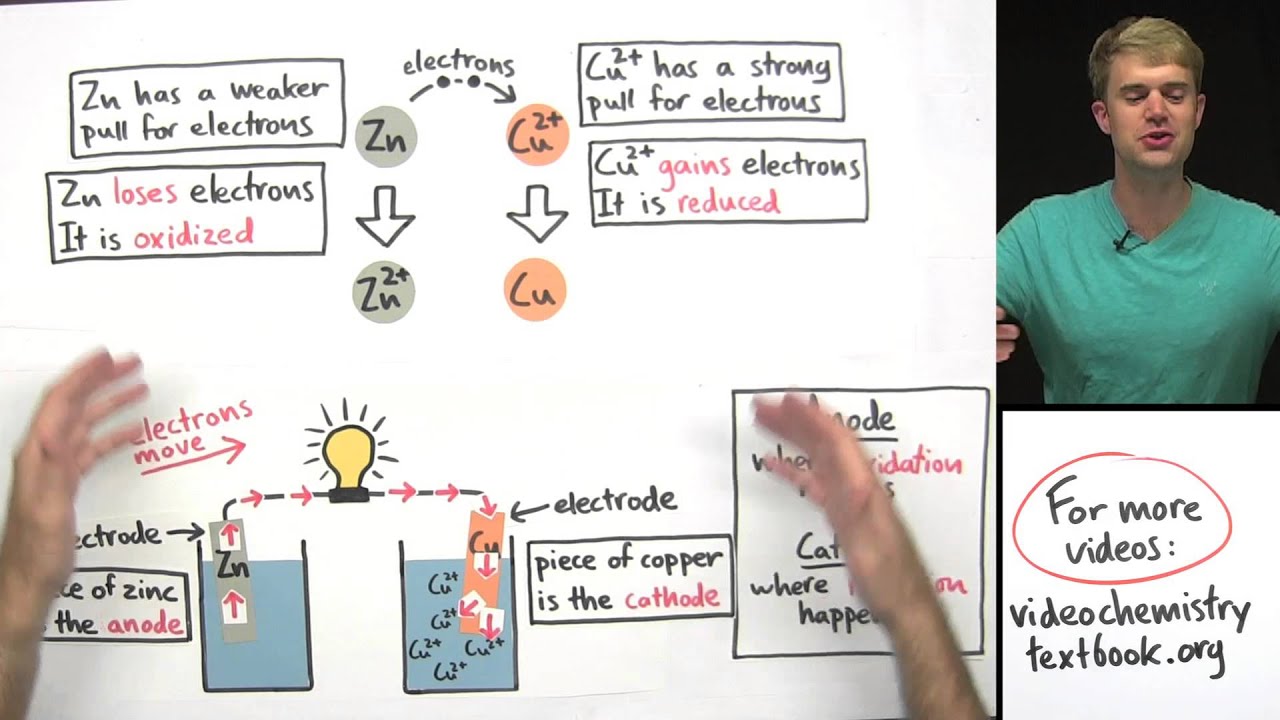 electrons
Zn has a weaker
pull for electrons
Zn
Cu2+
Cu2+ has a strong
pull for electrons
Zn loses electrons
It is oxidized
Cu2+ gains electrons
It is reduced
Zn2+
Cu
electrons
move
electrode
Zn
of zinc
the anode
Cu
Cu2+
Cu2+
Cu2+
Cu2+
Cu2+
electrode
piece of copper
is the cathode
Anode
where oxidation
where
For more
videos:
videochemistry
textbook.org